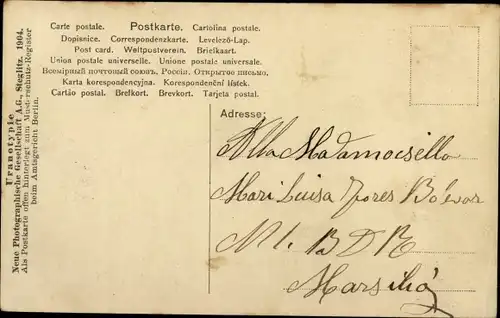 Carte postale. Postkarte. Cartolina postale.
Dopisnice. Correspondenzkarte. Levelező-Lap.
Post card. Weltpostverein. Briefkaart.
Union postale universelle. Unione postale universale.
Всемірный почтовый союзъ, Россія. Открытое письмо.
Karta korespondencyjna. Korespondenční lístek.
Cartão postal. Brefkort. Brevkort. Tarjeta postal.
Uranotypie
Neue Photographische Gesellschaft A.G., Steglitz. 1904.
Als Postkarte offen hinterlegt zum Musterschutz-Register
beim Amtsgericht Berlin.
Adresse:
Alla Madamosella
Mari Luisa
B D R
Marsilia